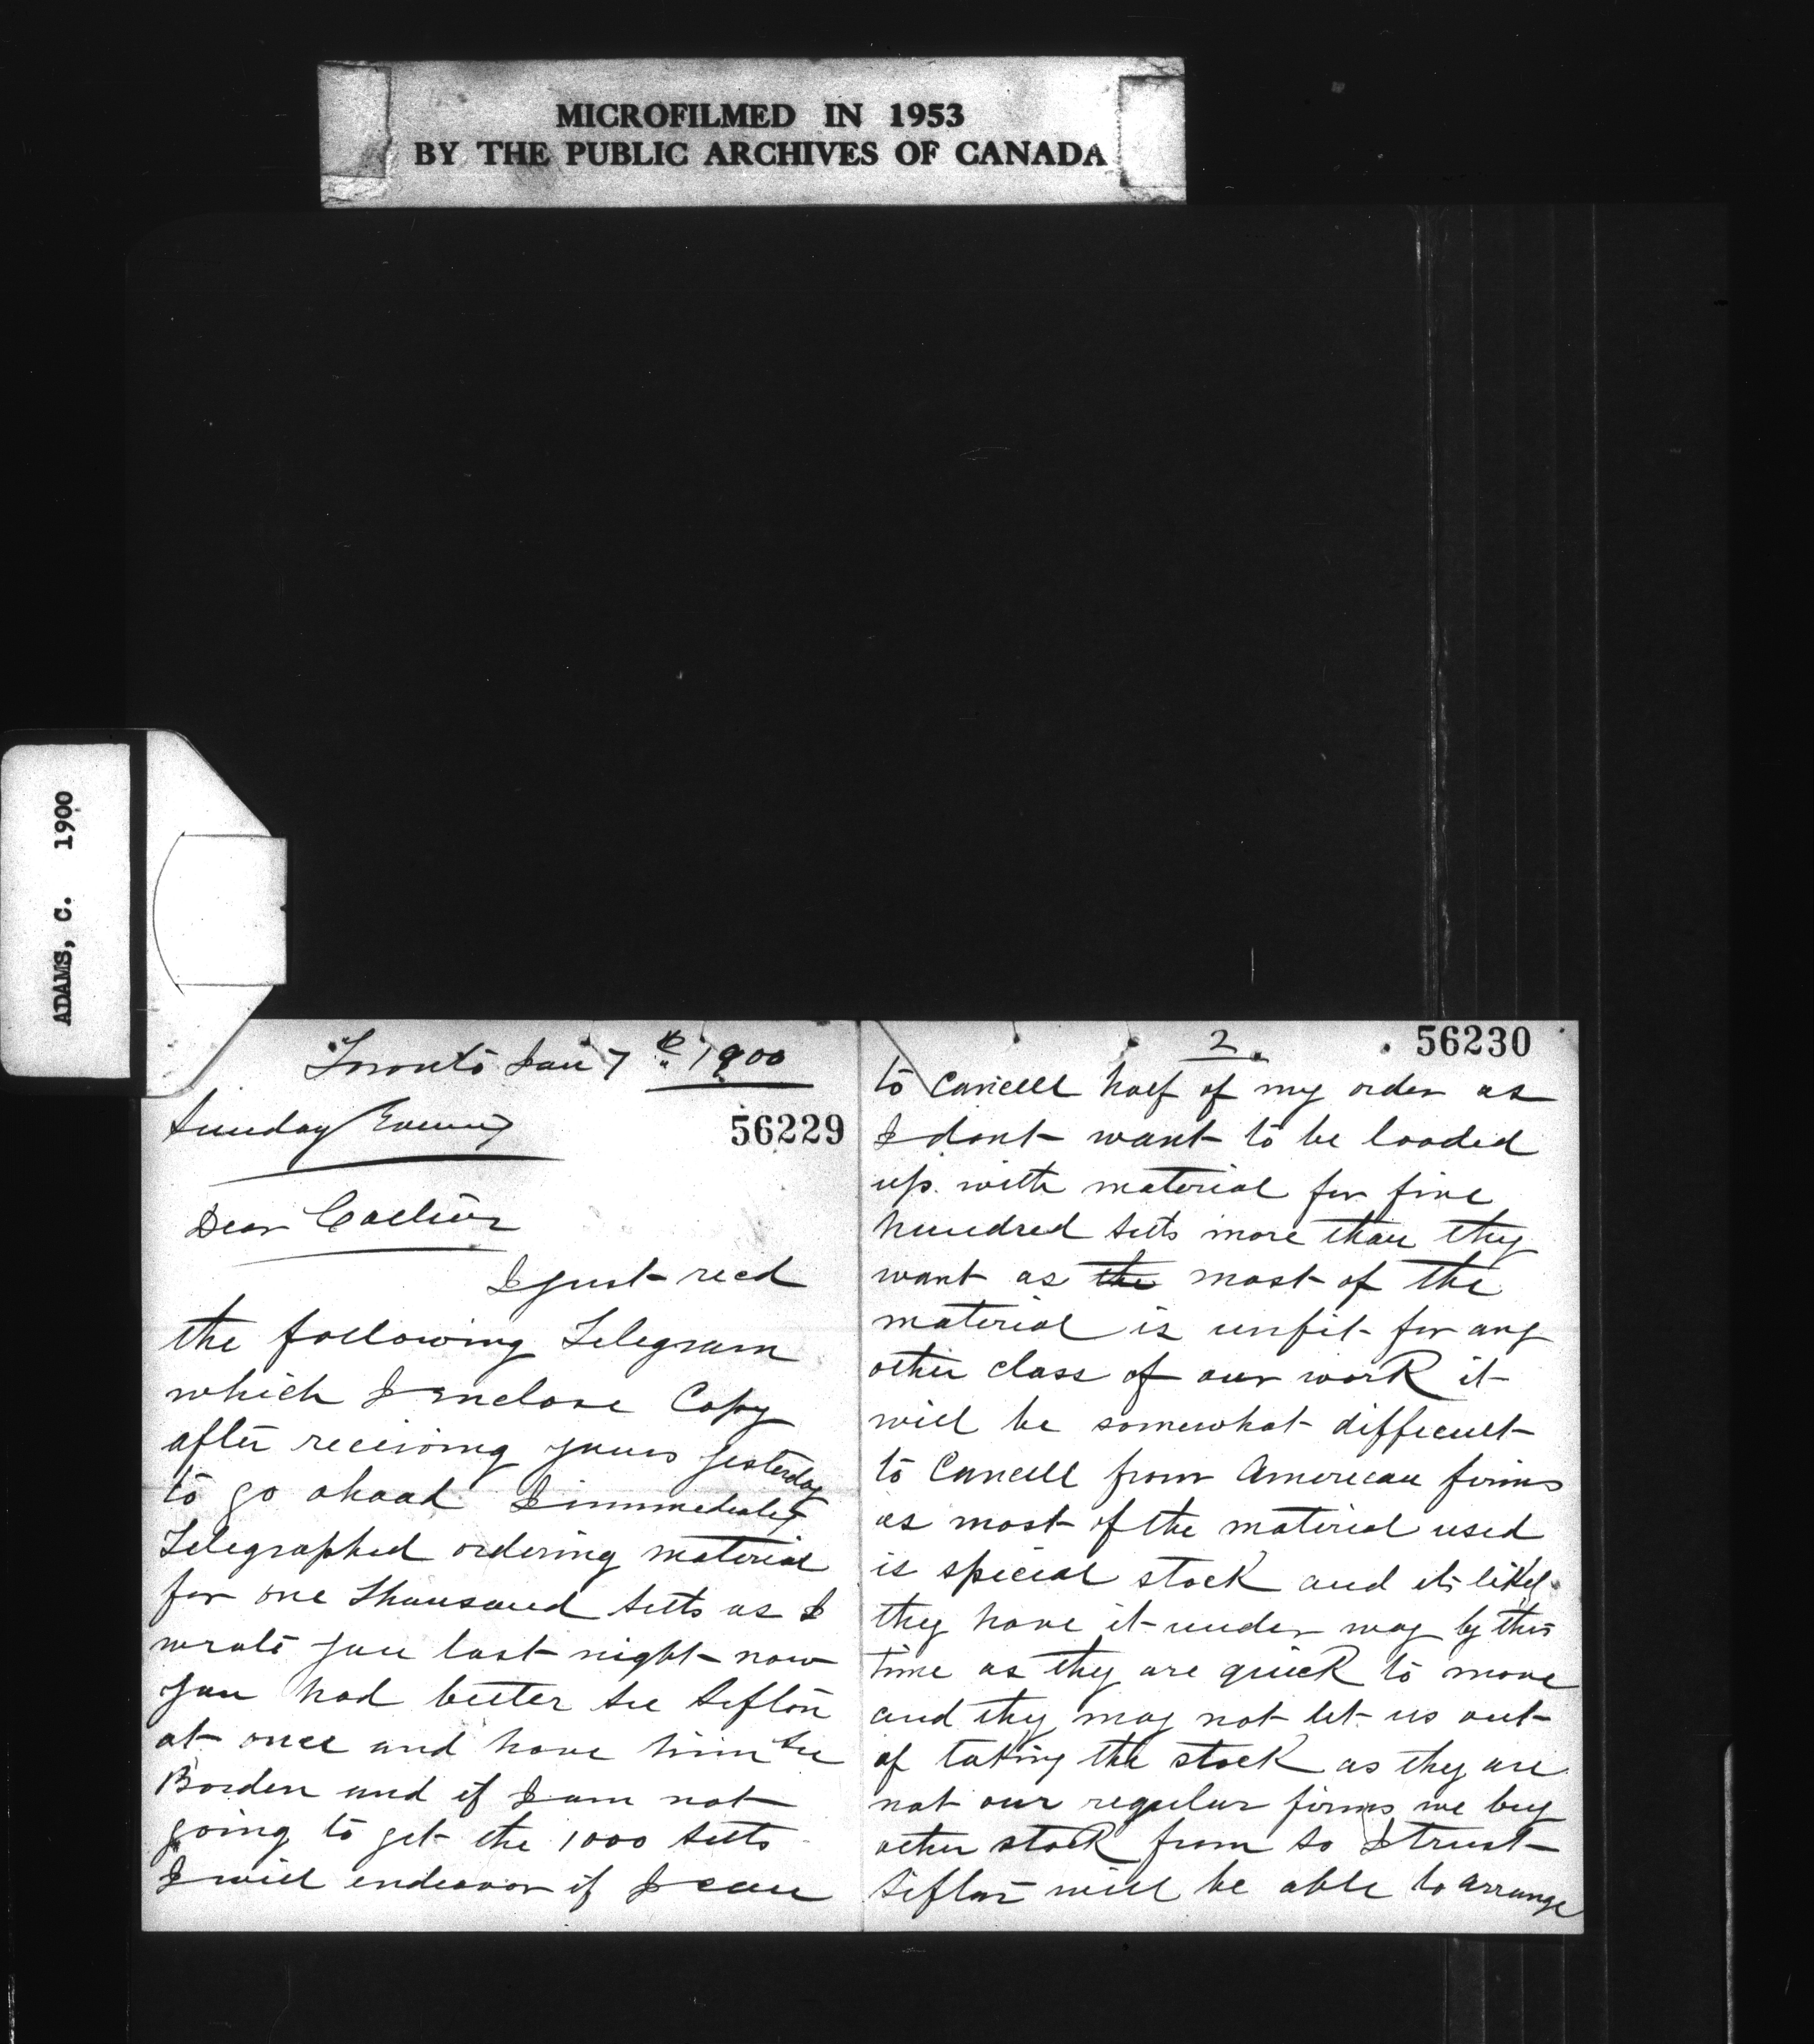 MICROFILMED IN 1953
BY THE PUBLIC ARCHIVES OF CANADA
ADAMS, C. 1900
Toronto Jan 7th 1900
Sunday Evening
56229
Dear
I just recd
the following Telegram
which I enclose Copy
after receiving yours yesterday
to go ahead I immediately
Telegraphed ordering material
for one Thousand setts as I
wrote you last night now
you had better see Sifton
at once and have him see
Borden and if I am not
going to get the 1000 setts
I will endeavor if I can
2.
56230
to Cancell half of my order as
I dont want to be loaded
up with material for five
hundred setts more than they
want as the most of the
material is unfit for any
other class of our work it
will be somewhat difficult
to Cancell from American firms
as most of the material used
is special stock and its likely
they have it under way by this
time as they are quick to move
and they may not let us out
of taking the stock as they are
not our regular firms we buy
other stock from so I trust
Sifton will be able to arrange